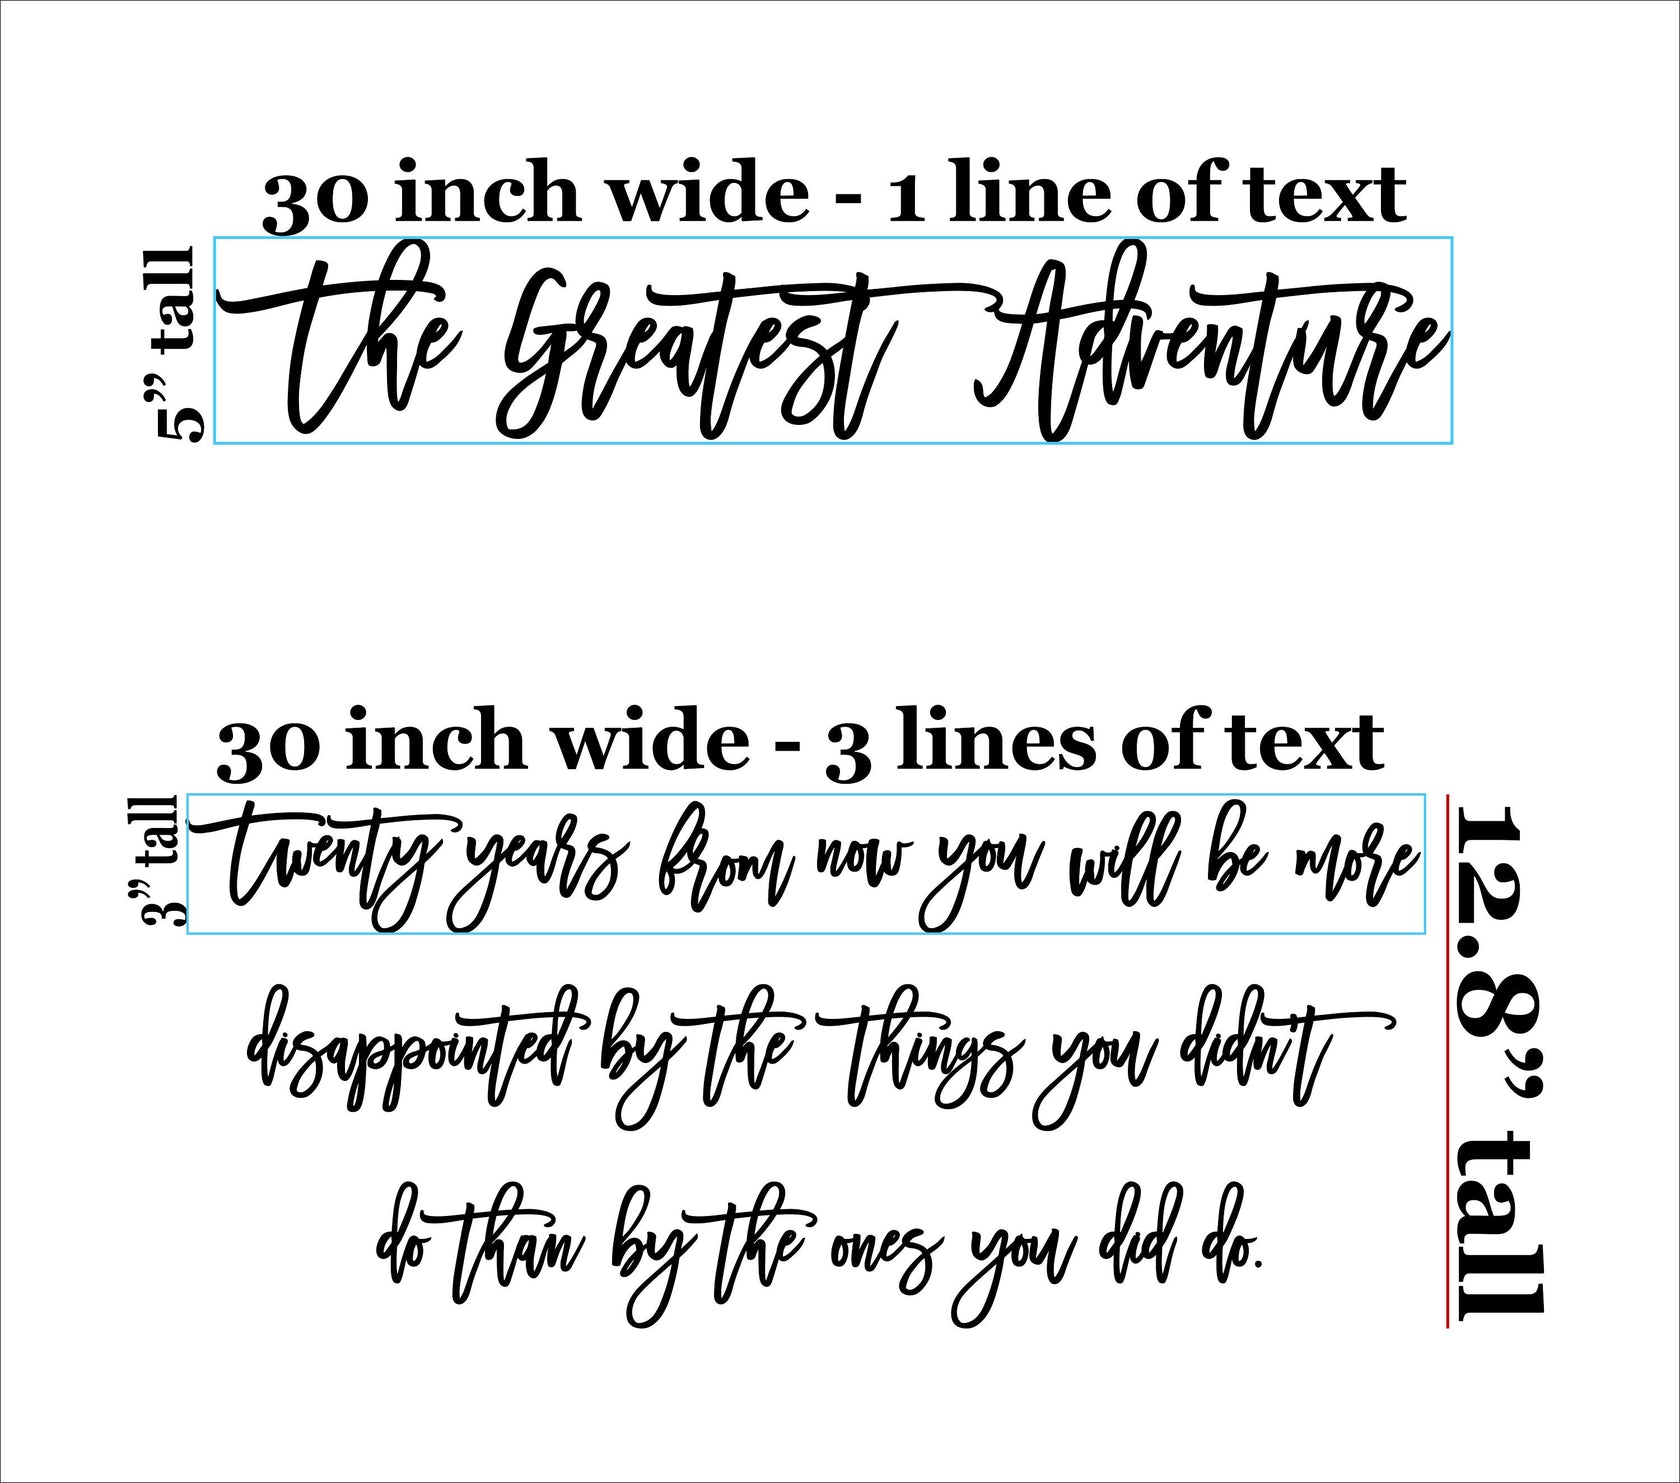 30 inch wide - 1 line of text
5” tall
the Greatest Adventure
30 inch wide - 3 lines of text
3” tall
twenty years from now you will be more
disappointed by the things you didn't
do than by the ones you did do.
12.8” tall